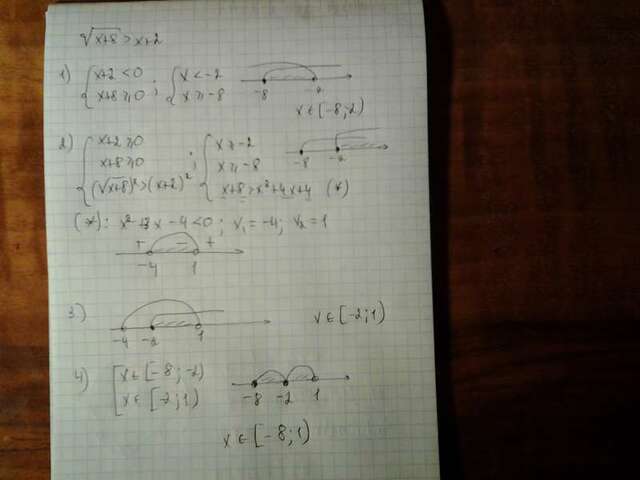 √x+8 > x+2
1) { x+2 < 0 ; { x < -2
x+8 ≥ 0 x ≥ -8
-8 -2
x ∈ [-8; -2)
2) { x+2 ≥ 0 ; { x ≥ -2
x+8 ≥ 0 x ≥ -8
(√x+8)² > (x+2)² x+8 > x²+4x+4 (*)
-8 -2
(*): x²+3x-4 < 0; x₁ = -4; x₂ = 1
+ - +
-4 1
3.)
-4 -2 1
x ∈ [-2; 1)
4) [ x ∈ [-8; -2)
x ∈ [-2; 1)
-8 -2 1
x ∈ [-8; 1)